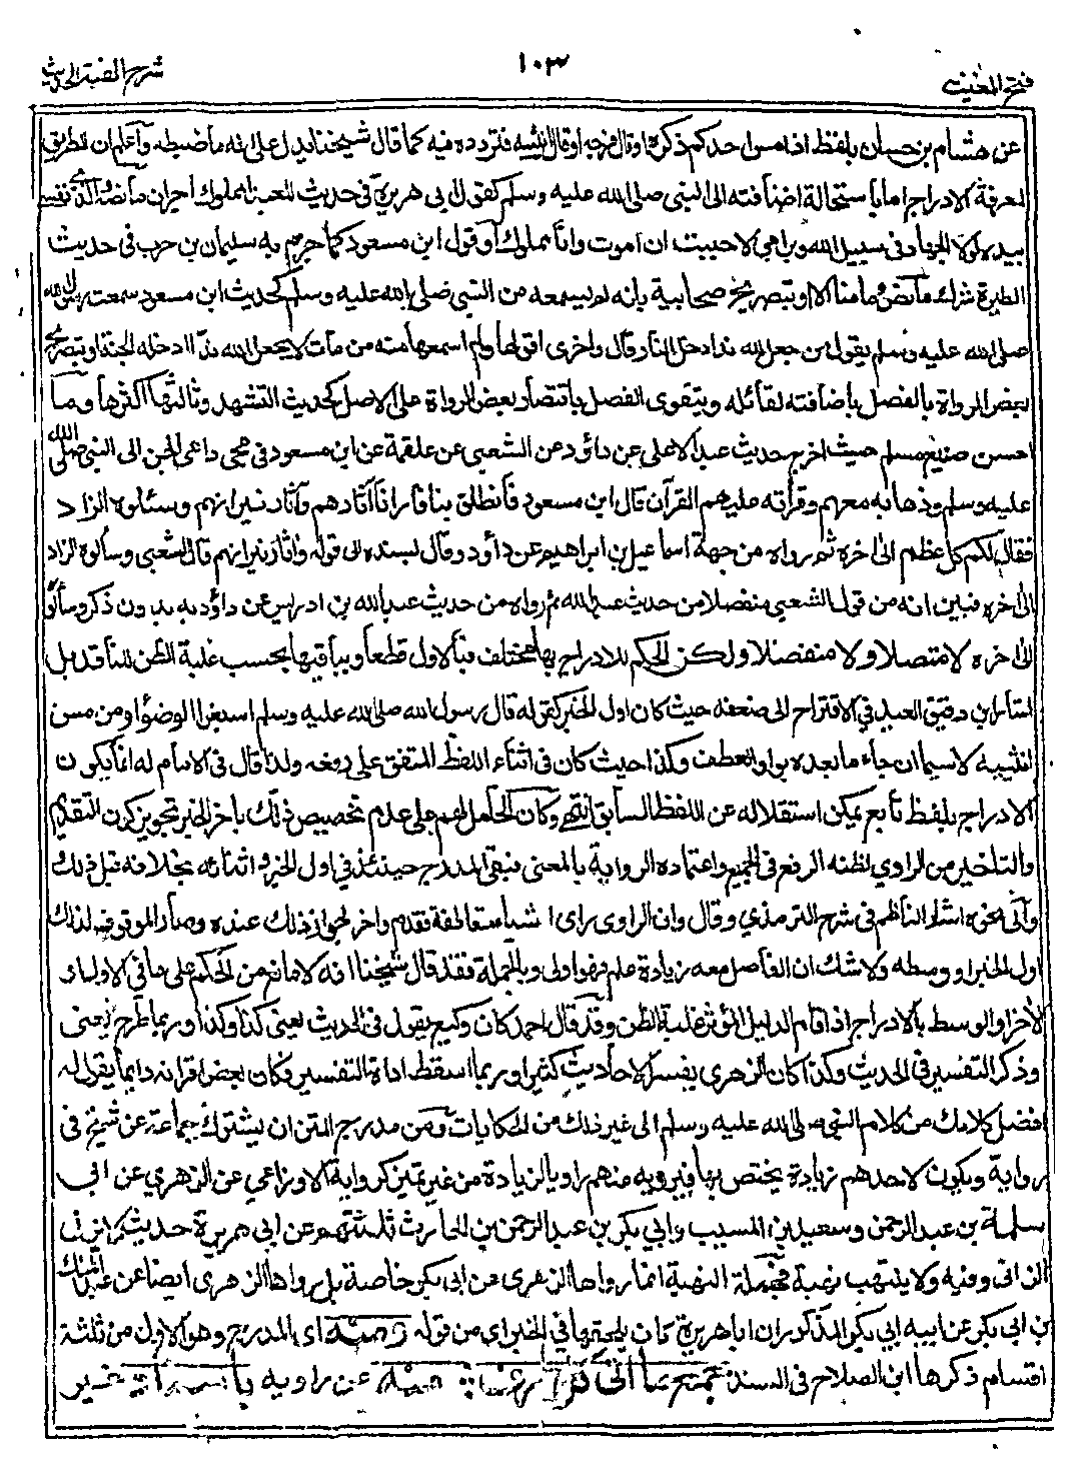 فتح المغيث
١٠٣
شرح الفية الحديث
عن هشام بن حسان بلفظ اذا مس احدكم ذكره او قال فرجه او قال انثييه فتردده فيه كما قال شيخنا يدل على انه ما ضبطه واعلم ان الطريق
لمعرفة الادراج اما باستحالة اضافته الى النبي صلى الله عليه وسلم كقول ابي هريرة في حديث للعبد المملوك اجران ما نصه والذي نفسي
بيده لولا الجهاد في سبيل الله وبر امي لاحببت ان اموت وانا مملوك او قول ابن مسعود كما جزم به سليمان بن حرب في حديث
الطيرة شرك ما نصه وما منا الا او بتصريح صحابيه بانه لم يسمعه من النبي صلى الله عليه وسلم كحديث ابن مسعود سمعت رسول الله
صلى الله عليه وسلم يقول من جعل لله ندا دخل النار وقال واخرى اقولها ولم اسمعها منه من مات لا يجعل لله ندا ادخله الجنة او بتصريح
بعض الرواة بالفصل باضافته لقائله ويتقوى الفصل باقتصار بعض الرواة على الاصل كحديث التشهد وثالثها اكثرها وما
احسن صنيع مسلم حيث اخرج حديث عبد الاعلى عن داؤد عن الشعبي عن علقمة عن ابن مسعود في مجئ داعي الجن الى النبي صلى الله
عليه وسلم وذهابه معهم وقرأته عليهم القرآن قال ابن مسعود فانطلق بنا فارانا آثارهم وآثار نيرانهم وسئلوه الزاد
فقال لكم كل عظم الى اخره ثم رواه من جهة اسماعيل بن ابراهيم عن داؤد وقال بسنده الى قوله واثار نيرانهم قال الشعبي وسألوه الزاد
الى اخره فبين انه من قول الشعبي منفصلا من حديث عبد الله ثم رواه من حديث عبد الله بن ادريس عن داؤد به بدون ذكر وسألوه
الى اخره لا متصلا ولا منفصلا ولكن الحكم للادراج بها مختلف فبالاول قطعا وبباقيها بحسب غلبة الظن للناقد بل
اشار ابن دقيق العيد في الاقتراح الى ضعفه حيث كان اول الخبر كقوله قال رسول الله صلى الله عليه وسلم اسبغوا الوضوء او من مس
انثييه لا سيما ان جاء ما بعده بواو العطف وكذا حيث كان في اثناء اللفظ المتفق على رفعه ولذا قال في الامام له انما يكون
الادراج بلفظ تابع يمكن استقلاله عن اللفظ السابق انتهى وكان الحامل لهم على عدم تخصيص ذلك باخر الخبر تجويز كون التقديم
والتاخير من الراوي لظنه الرفع في الجميع واعتماده الرواية بالمعنى فبقي المدرج حينئذ في اول الخبر واثنائه بخلافه قبل ذلك
والى نحوه اشار الناظم في شرح الترمذي وقال وان الراوي راى اشياء متعاطفة فقدم واخر لجواز ذلك عنده وصار الموقوف لذلك
اول الخبر او وسطه ولا شك ان الفاصل معه زيادة علم فهو اولى وبالجملة فقد قال شيخنا انه لا مانع من الحكم على ما في الاول او
الآخر او الوسط بالادراج اذا قام الدليل المؤثر غلبة الظن وقد قال احمد كان وكيع يقول في الحديث يعني كذا وكذا وربما طرح يعني
وذكر التفسير في الحديث وكذا كان الزهري يفسر الاحاديث كثيرا وربما اسقط اداة التفسير فكان بعض اقرانه دايما يقول له
افصل كلامك من كلام النبي صلى الله عليه وسلم الى غير ذلك من الحكايات ومن مدرج المتن ان يشترك جماعة عن شيخ في
رواية ويكون لاحدهم زيادة يختص بها فيرويه منهم راو بالزيادة من غير تمييز كرواية الاوزاعي عن الزهري عن ابي
سلمة بن عبد الرحمن وسعيد بن المسيب وابي بكر بن عبد الرحمن بن الحارث ثلثتهم عن ابي هريرة حديث لا يزني
الزاني وفيه ولا ينتهب نهبة فجملة النهبة انما رواها الزهري عن ابي بكر خاصة بل رواها الزهري ايضا عن عبد الملك
بن ابي بكر عن ابيه ابي بكر المذكور ان ابا هريرة كان يلحقها في الخبر اي من قوله ومنه اي المدرج وهو الاول من ثلثة
اقسام ذكرها ابن الصلاح في السند جمع ما اتى كل طرف منه عن راويه باسناد غير